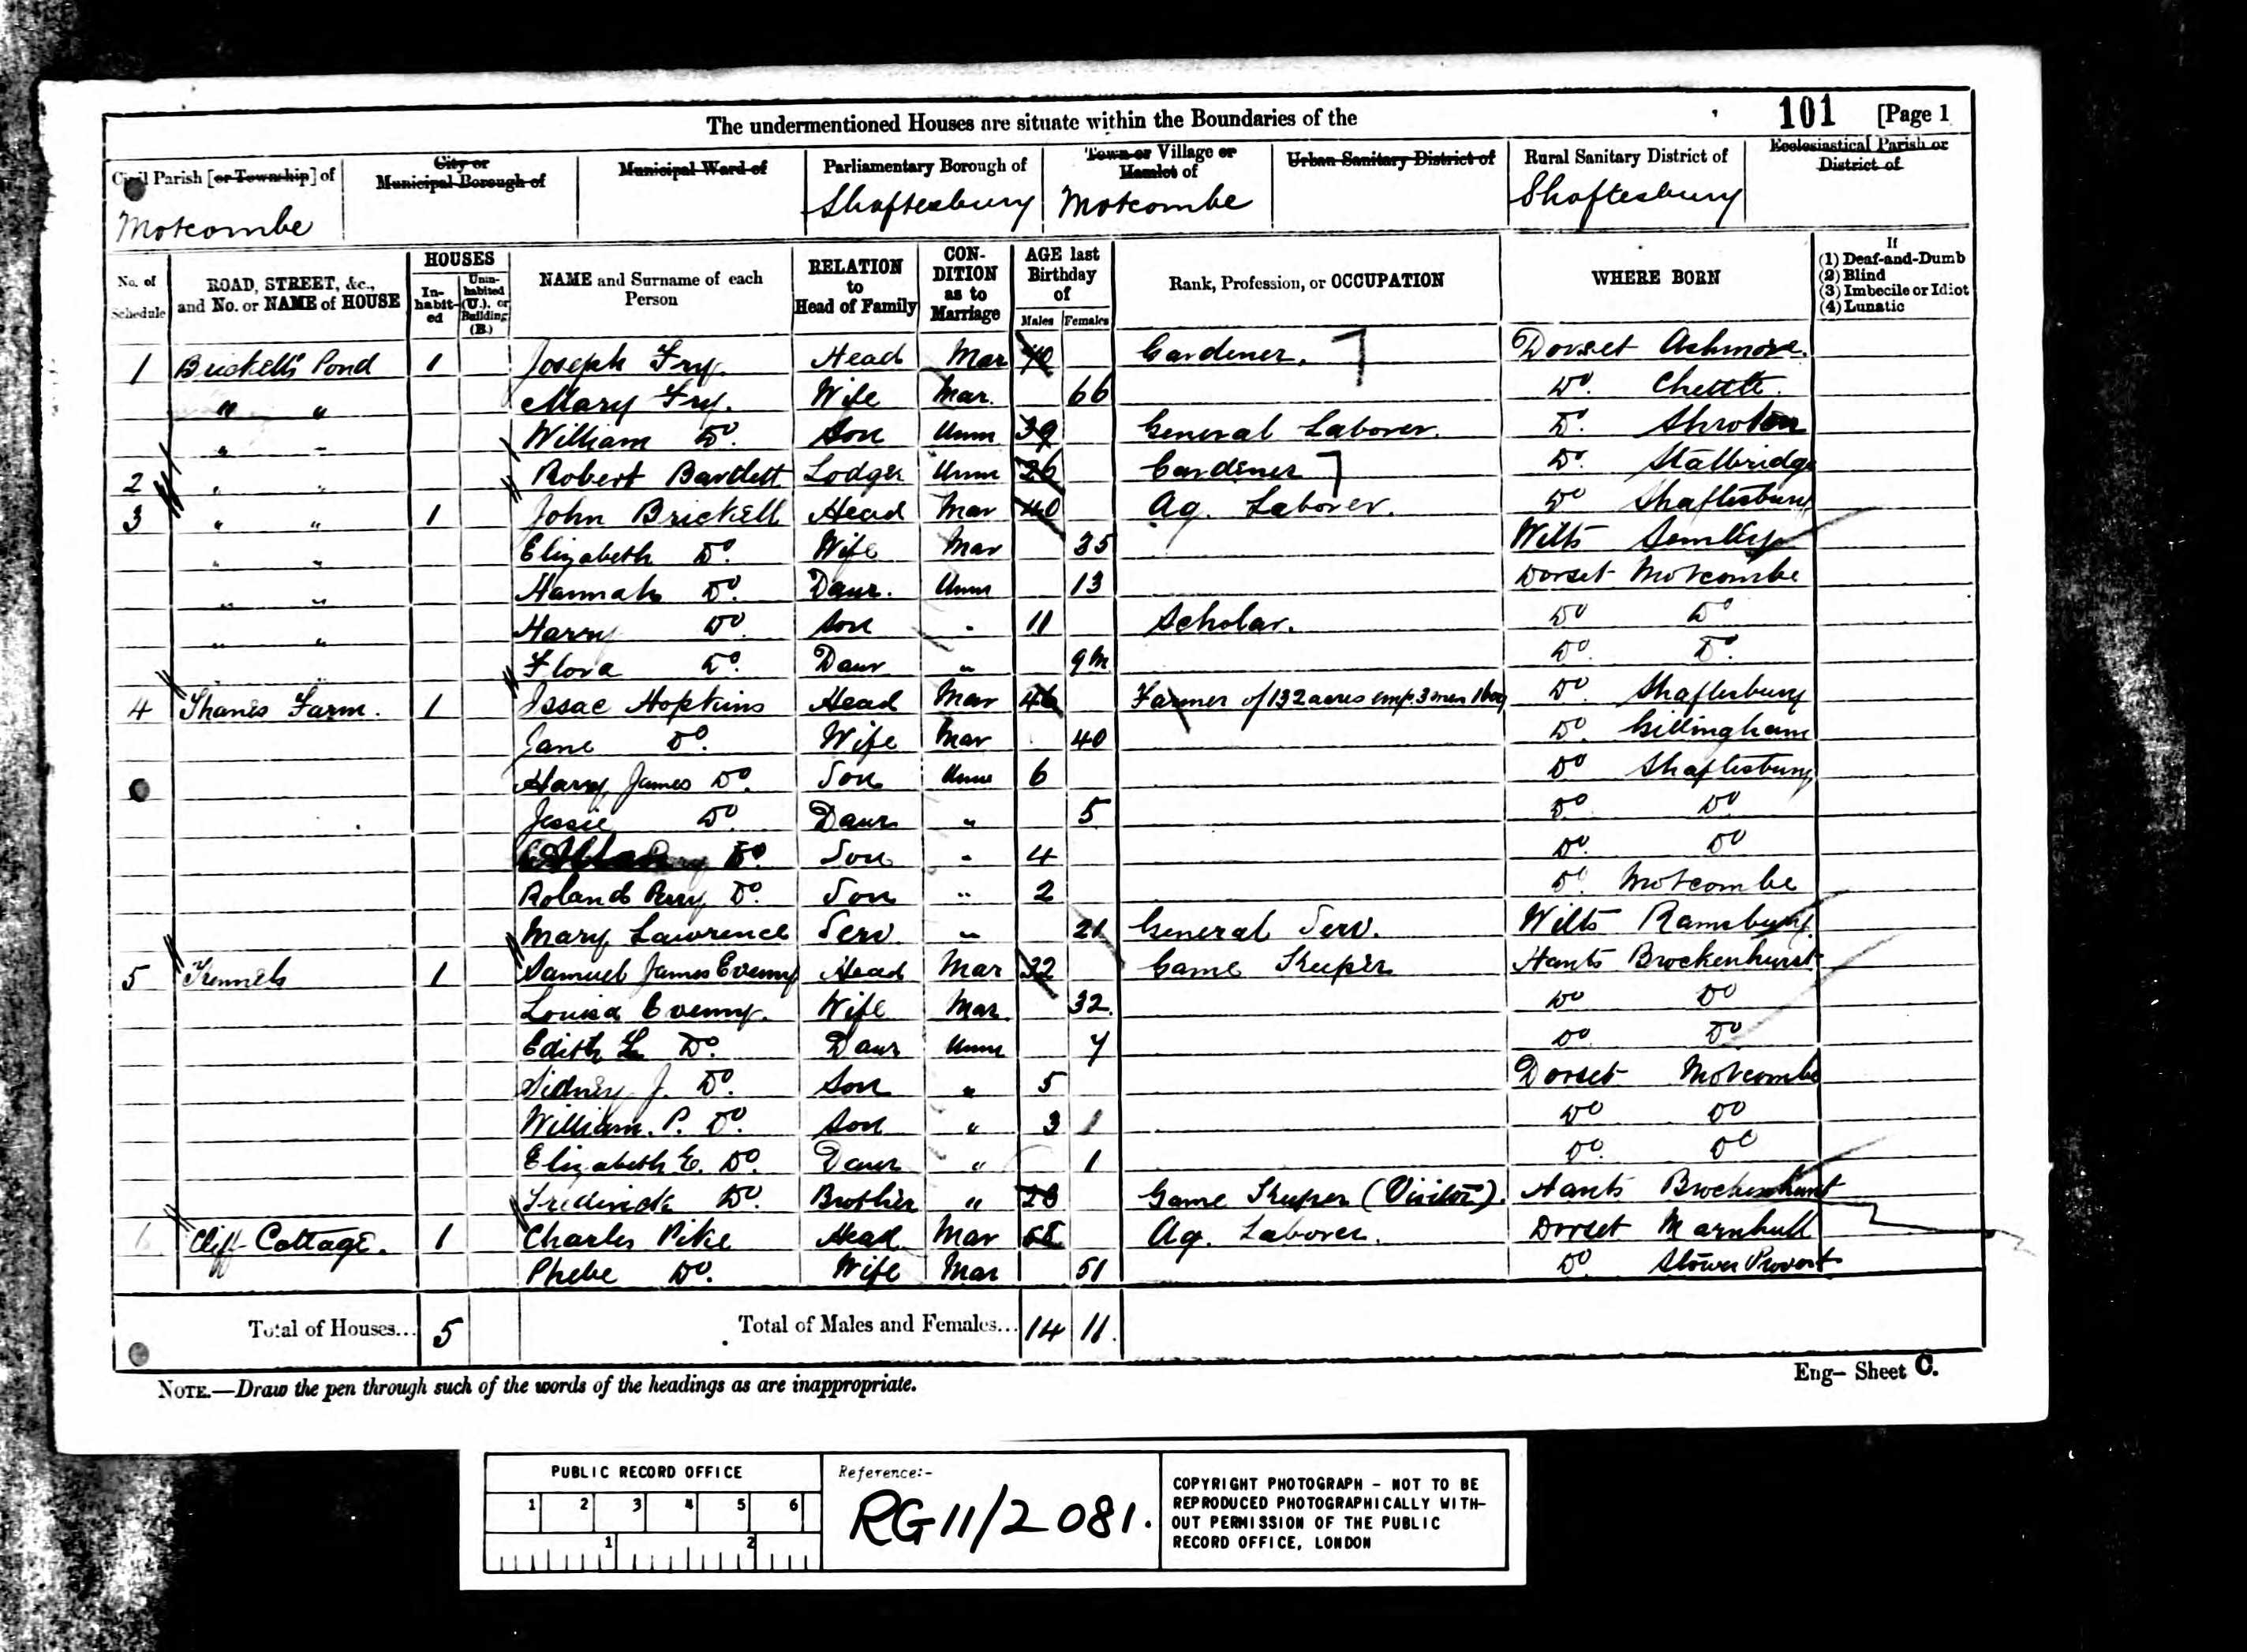 The undermentioned Houses are situate within the Boundaries of the
101 [Page 1
Civil Parish [or Township] of
City or Municipal Borough of
Municipal Ward of
Parliamentary Borough of
Town or Village or Hamlet of
Urban Sanitary District of
Rural Sanitary District of
Ecclesiastical Parish or District of
Motcombe Shaftesbury Motcombe Shaftesbury
No. of Schedule
ROAD, STREET, &c., and No. or NAME of HOUSE
HOUSES
In-habit-ed
Unin-habited (U.), or Building (B.)
NAME and Surname of each Person
RELATION to Head of Family
CON-DITION as to Marriage
AGE last Birthday of
Males Females
Rank, Profession, or OCCUPATION
WHERE BORN
If
(1) Deaf-and-Dumb
(2) Blind
(3) Imbecile or Idiot
(4) Lunatic
1 Brickells Pond 1 Joseph Fry. Head Mar Gardener. Dorset Ashmore.
" " Mary Fry. Wife Mar. 66 Do. Chettle.
" " William Do. Son Unm 39 General Laborer. Do. Shroton
2 " " Robert Bartlett Lodger Unm 26 Gardener Do. Stalbridge
3 " " 1 John Brickell Head Mar 40 Ag. Laborer. Do Shaftesbury
" " Elizabeth Do. Wife Mar 35 Wilts Semley
" " Hannah Do. Daur. Unm 13 Dorset Motcombe
" " Harry Do. Son " 11 Scholar. Do Do
" " Flora Do. Daur " 9m Do. Do.
4 Thanes Farm. 1 Issac Hopkins Head Mar 46 Farmer of 132 acres emp. 3 men 1 boy Do. Shaftesbury
Jane Do. Wife Mar 40 Do. Gillingham
Harry James Do. Son Unm 6 Do Shaftesbury
Jessie Do. Daur " 5 Do. Do
Do. Son " 4 Do. Do
Roland Percy Do. Son " 2 Do. Motcombe
Mary Lawrence Serv. " 21 General Serv. Wilts Ramsbury.
5 Kennels 1 Samuel James Evemy Head Mar 32 Game Keeper Hants Brockenhurst
Louisa Evemy. Wife Mar. 32. Do Do
Edith L Do. Daur Unm 7 Do Do
Sidney J. Do. Son " 5 Dorset Motcombe
William. P. Do. Son " 3 Do Do
Elizabeth E. Do. Daur " 1 Do. Do
Frederick Do. Brother " Game Keeper (Visitor). Hants Brockenhurst
6 Cliff Cottage. 1 Charles Pike Head Mar 58 Ag. Laborer. Dorset Marnhull
Phebe Do. Wife Mar 51 Do Stower Provost
Total of Houses... 5 Total of Males and Females... 14 11.
NOTE.—Draw the pen through such of the words of the headings as are inappropriate.
Eng– Sheet C.
PUBLIC RECORD OFFICE
1 2 3 4 5 6
1 2
Reference:-
RG 11/2081.
COPYRIGHT PHOTOGRAPH - NOT TO BE
REPRODUCED PHOTOGRAPHICALLY WITH-
OUT PERMISSION OF THE PUBLIC
RECORD OFFICE, LONDON